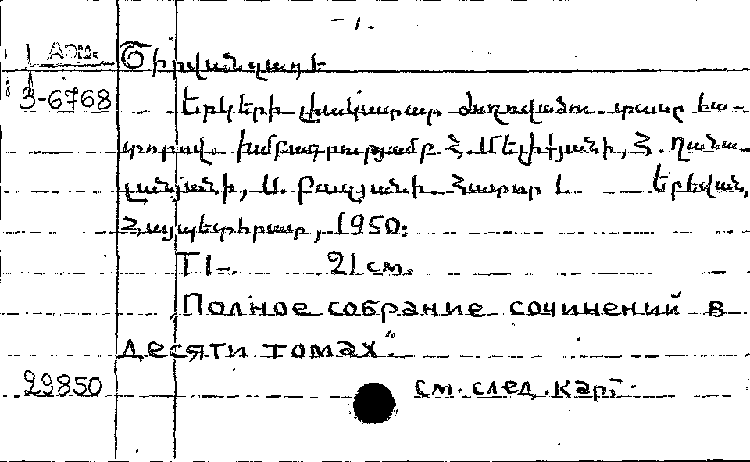 -1.
Арм. Շիրվանզադե
3-6768 Երկերի լիակատար ժողովածու. տասը հա-
տորով. խմբագրությամբ Հ. Մելիքյանի, Հ. Ղանա-
լանյանի, Ս. Բազյանի. Հատոր 1. Երևան,
Հայպետհրատ, 1950:
Т1-. 21 см.
Полное собрание сочинений в
десяти томах.
29850 см. след. карт.